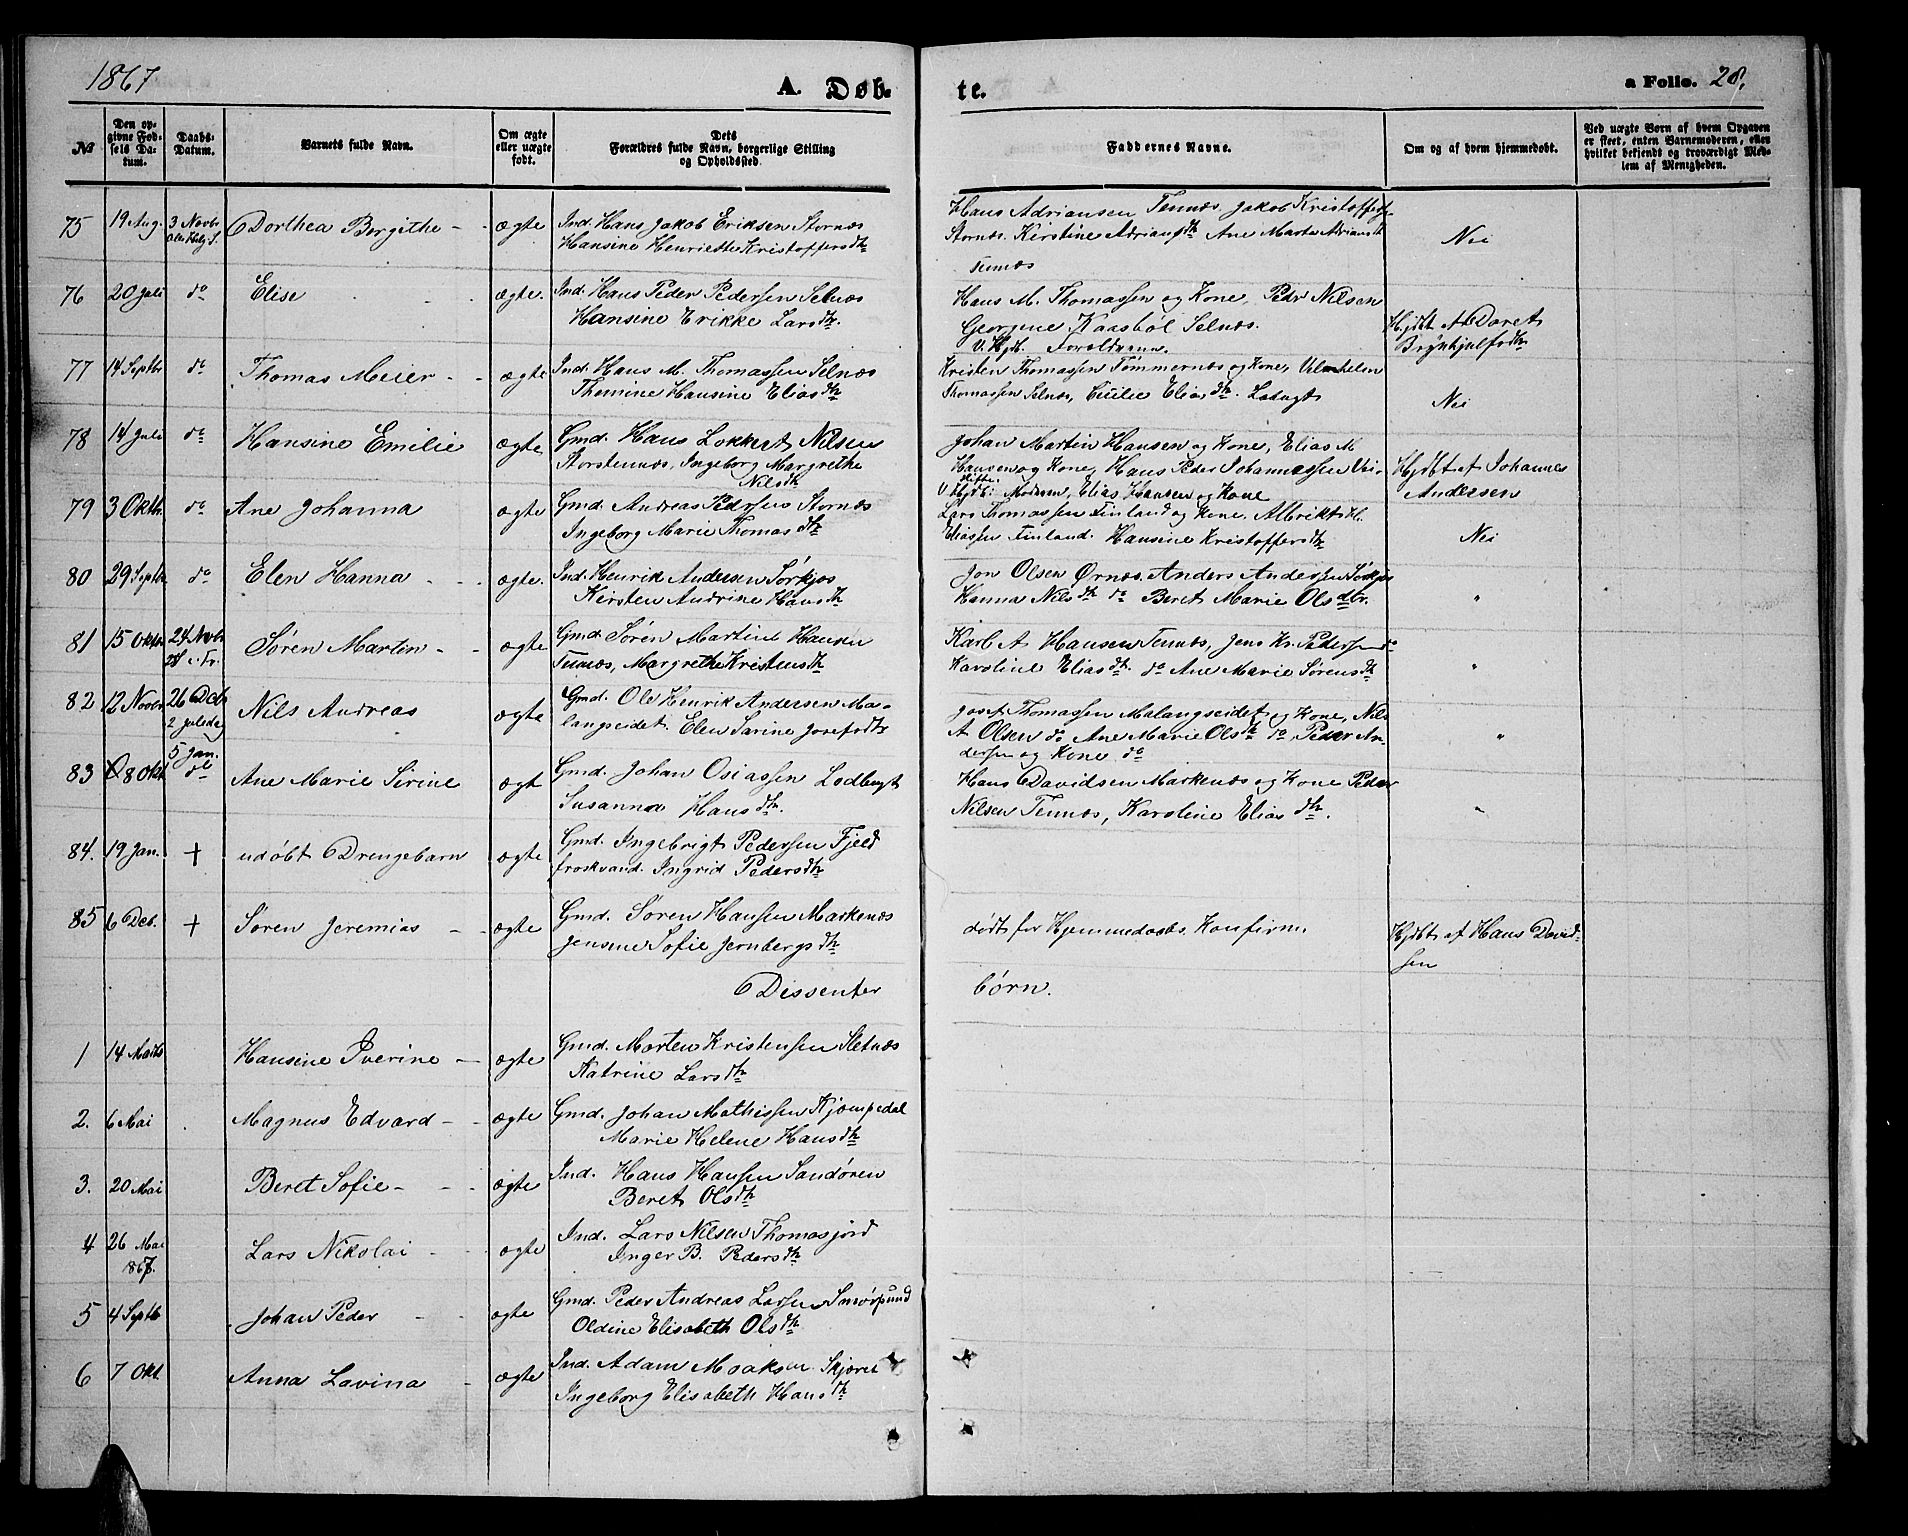 1867
A. Døb-
te.
a Folio. 28.
№
Den op-
givne Fød-
sels Da-
tum.
Daabs-
Datum.
Barnets fulde Navn.
Om ægte
eller uægte
født.
Dets
Forældres fulde Navn, borgerlige Stilling
og Opholdssted.
Faddernes Navne.
Om og af hvem hjemmedøbt.
Ved uægte Børn af hvem Opgaven
er skeet, enten Barnemoderen, eller
hvilket bekjendt og troværdigt Med-
lem af Menigheden.
75 19 Aug. 3 Novbr Dorthea Borgithe - - ægte Ind. Hans Jakob Eriksen Stornæs Hans Adriansen Tennæs, Jakob Kristoffers
Ale Helg. S. Hansine Henriette Kristoffersdtr Stornæs. Kerstine Adriansdtr Ane Marta Adriansdtr Nei
Tennæs
76 20 Juli do Elise ægte. Ind. Hans Peder Pedersen Selnæs Hans M. Thomassen og Kone, Pedr Nilsen
Hansine Erikke Larsdtr. Georgine Kaasbøl Selnæs. Hjdbt af Doret
V. Hjdb. Forældrene. Brynhjulfsdtr
77 14 Septbr do Thomas Meier - - ægte Ind. Hans M. Thomassen Selnæs Kristen Thomassen Tømmernæs og Kone, Vilmhelm
Themine Hansine Eliasdtr Thomassen Selnæs, Cecilie Eliasdtr. Labugt Nei
78 14 Juli do Hansine Emilie ægte Gmd. Hans Lokkert Nilsen Johan Martin Hansen og Kone, Elias M
Storstennæs, Ingeborg Margrethe Hansen og Kone, Hans Peder Johannessen Vei- Hjdbt af Johannes
Nilsdtr skifte. V. Hjdb: Moderen, Elias Hansen og Kone Andersen
79 3 Oktb. do Ane Johanna ægte Gmd. Andreas Pedersen Stornæs Lars Thomassen Finland og Kone, Albrikt M.
Ingeborg Marie Thomasdtr Eliassen Finland. Hansine Kristoffersdtr Nei
80 29 Septbr do Elen Hanna - - ægte. Ind. Henrik Andersen Sørkjos Jon Olsen Ørnæs. Anders Andersen Sørkjos
Kirsten Andrine Hansdtr Hanna Nilsdtr do Beret Marie Olsdtr. "
81 15 Oktbr 24 Novbr Søren Martin - - ægte Gmd. Søren Martin Hansen Karl A Hansen Tennæs, Jens Kr. Pedersen do
24 e. Tr. Tennæs, Margrethe Kristensdtr Karoline Eliasdtr. do Ane Marie Sørensdtr "
82 12 Novbr 26 Deb Nils Andreas ægte Gmd. Ole Henrik Andersen Ma- Josef Thomassen Malangseidet og Kone, Nils
2 Juledag langseidet. Elen Sarine Josefsdtr A Olsen do Ane Marie Olsdtr do, Peder An- "
dersen og Kone do
5 Jan.
83 8 Okt do Ane Marie Sirine ægte Gmd. Johan Osiassen Lodbugt Hans Davidsen Markenæs og Kone Peder
Susanna Hansdtr. Nilsen Tennæs, Karoline Eliasdtr. "
84. 19 Jan. + udøbt Drengebarn ægte Gmd. Ingebrigt Pedersen Fjeld
froskvand. Ingrid Pedersdtr
85 6 Deb. + Søren Jeremias - ægte Gmd. Søren Hansen Markenæs dødt før Hjemmedaabs. Konfirm. Hjdbt af Hans David-
Jensine Sofie Jernbergsdtr sen
Dissenter børn.
1 14 Marts Hansine Iverine - ægte Gmd. Morten Kristensen Sletnæs
Katrine Larsdtr
2. 6 Mai Magnus Edvard - - ægte Gmd. Johan Mathissen Kjempedal
Marie Helene Hansdtr
3. 20 Mai Beret Sofie - - - ægte Ind. Hans Hansen Sandøren
Beret Olsdtr
4 26 Mai Lars Nikolai - - ægte Ind. Lars Nilsen Thomasjord
1867. Inger B. Pedersdtr
5 4 Septb Johan Peder - - ægte Gmd. Peder Andreas Larsen Smørsund
Oldine Elisabeth Olsdtr
6 7 Okt Anna Lavina - ægte Ind. Adam Moaksen Skjaret
Ingeborg Elisabeth Hansdtr